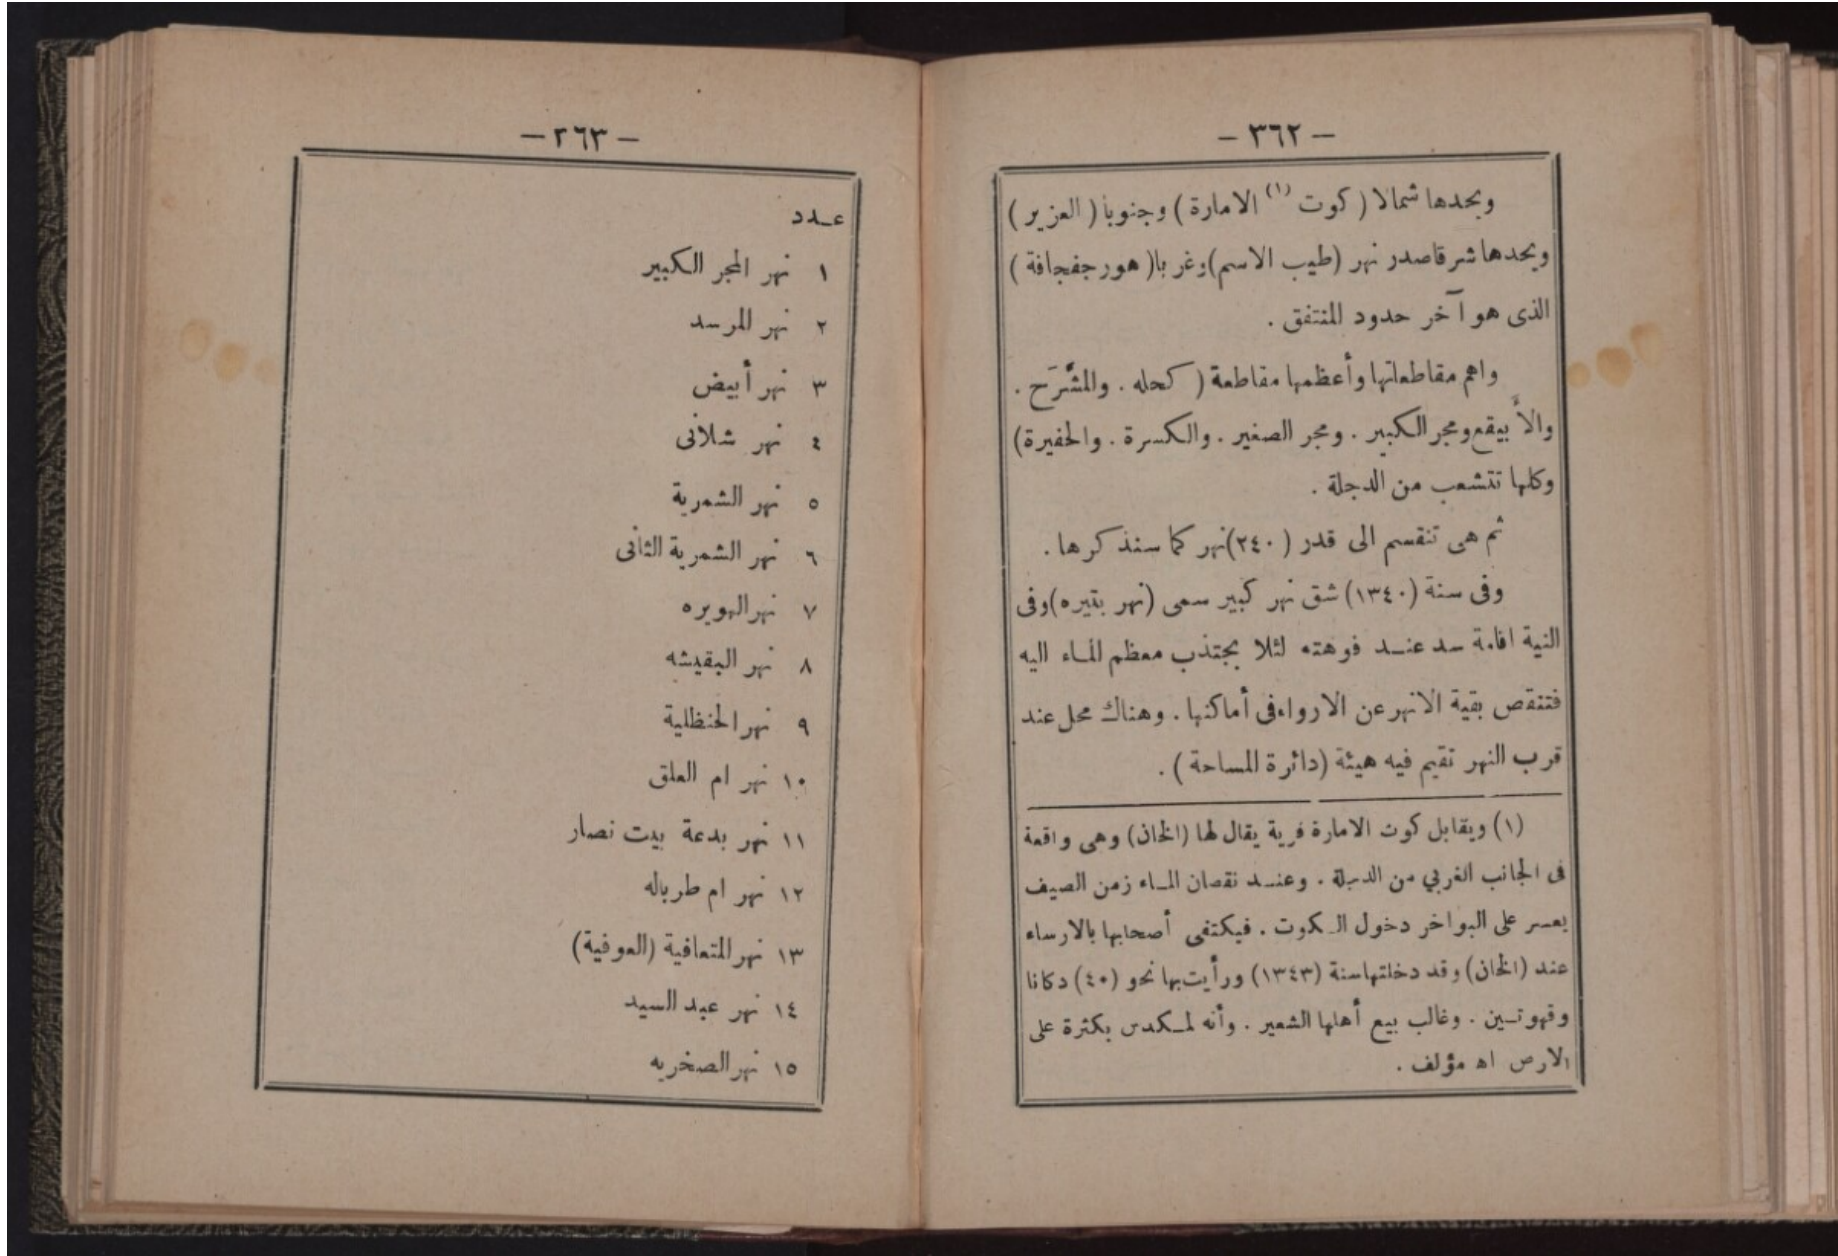 — ٣٦٢ —
ويحدها شمالا ( كوت (١) الامارة ) وجنوبا ( العزير )
ويحدها شرقا صدر نهر (طيب الاسم) وغربا ( هور جفجافة )
الذى هو آخر حدود المنتفق .
واهم مقاطعاتها وأعظمها مقاطعة ( كحله . والمشَّرَح .
والأَبيقع ومجر الكبير . ومجر الصغير . والكسرة . والحفيرة)
وكلها تتشعب من الدجلة .
ثم هى تنقسم الى قدر (٢٤٠) نهر كما سنذكرها .
وفى سنة (١٣٤٠) شق نهر كبير سمى (نهر بتيره) وفى
النية اقامة سد عند فوهته لئلا يجتذب معظم الماء اليه
فتنقص بقية الانهر عن الارواء فى أماكنها . وهناك محل عند
قرب النهر تقيم فيه هيئة (دائرة المساحة ) .
(١) ويقابل كوت الامارة قرية يقال لها (الخان) وهى واقعة
فى الجانب الغربي من الدجلة . وعند نقصان الماء زمن الصيف
يعسر على البواخر دخول الكوت . فيكتفى أصحابها بالارساء
عند (الخان) وقد دخلتها سنة (١٣٤٣) ورأيت بها نحو (٤٠) دكانا
وقهوتين . وغالب بيع أهلها الشعير . وأنه لمكدس بكثرة على
الارض اه مؤلف .
— ٢٦٣ —
عدد
١ نهر المجر الكبير
٢ نهر المرسد
٣ نهر أبيض
٤ نهر شلانى
٥ نهر الشمرية
٦ نهر الشمرية الثانى
٧ نهر الهويره
٨ نهر البقيشه
٩ نهر الحنظلية
١٠ نهر ام العلق
١١ نهر بدعة بيت نصار
١٢ نهر ام طرباله
١٣ نهر المتعافية (العوفية)
١٤ نهر عبد السيد
١٥ نهر الصخريه